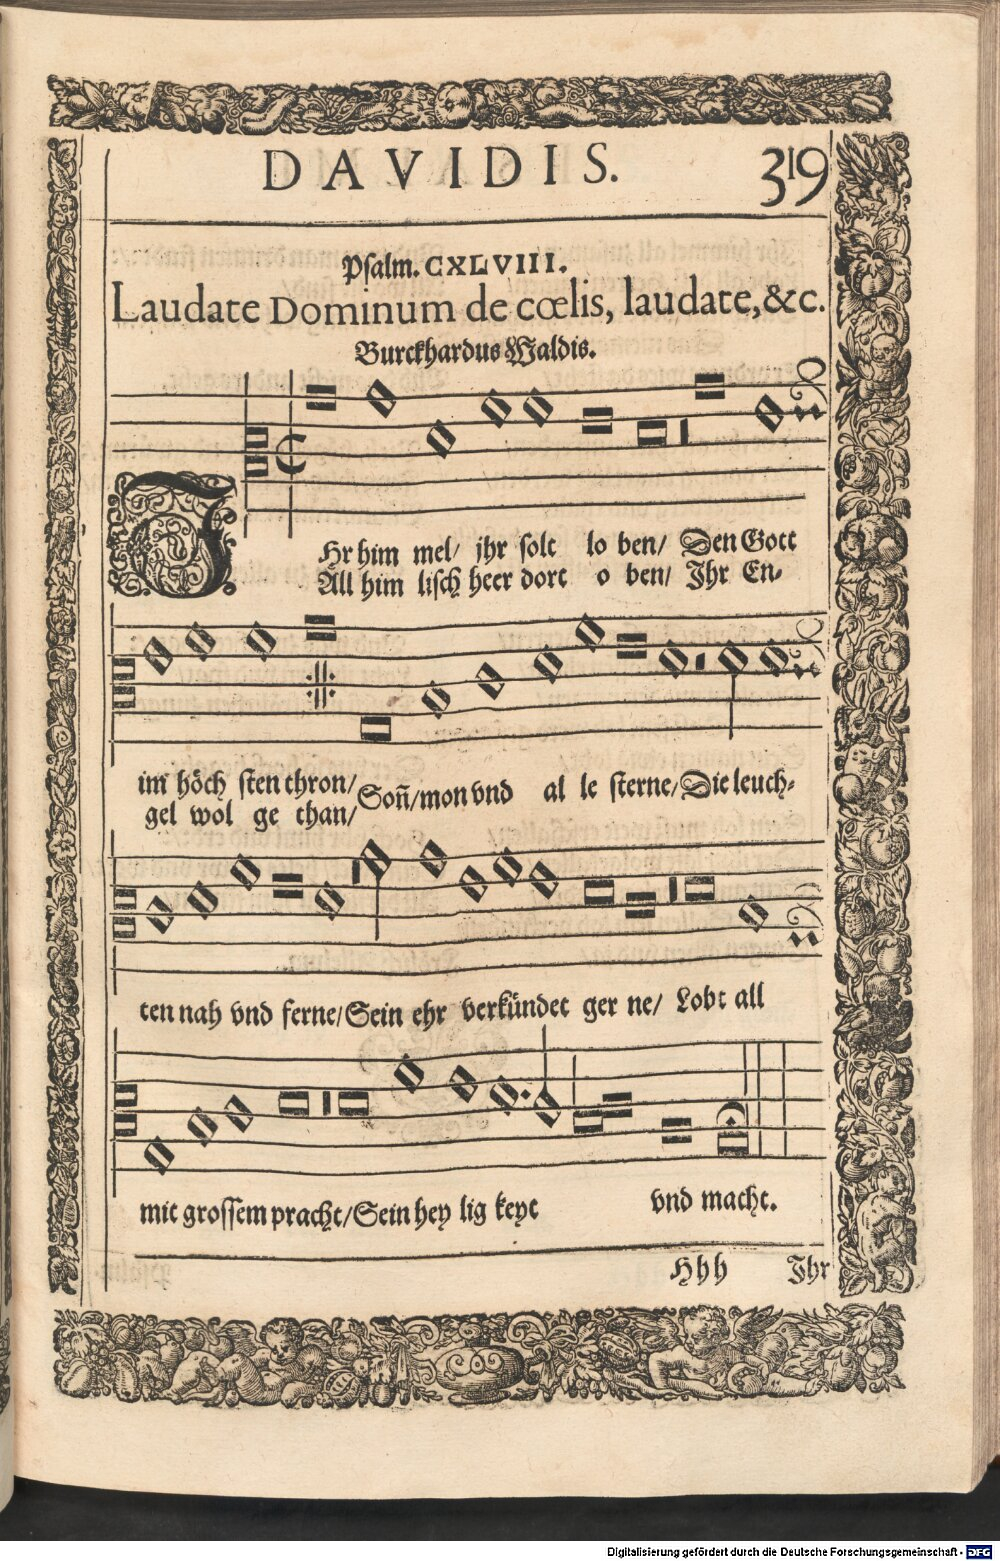 DAVIDIS. 319
Psalm. CXLVIII.
Laudate Dominum de cœlis, laudate, &c.
Burckhardus Waldis.
IHr him mel/ jhr solt lo ben/ Den Gott
All him lisch heer dort o ben/ Ihr En-
im höch sten thron/
gel wol ge than/
Soñ/mon vnd al le sterne/Die leuch-
ten nah vnd ferne/Sein ehr verkündet ger ne/ Lobt all
mit grossem pracht/Sein hey lig keyt vnd macht.
Hhh Ihr
Digitalisierung gefördert durch die Deutsche Forschungsgemeinschaft - DFG